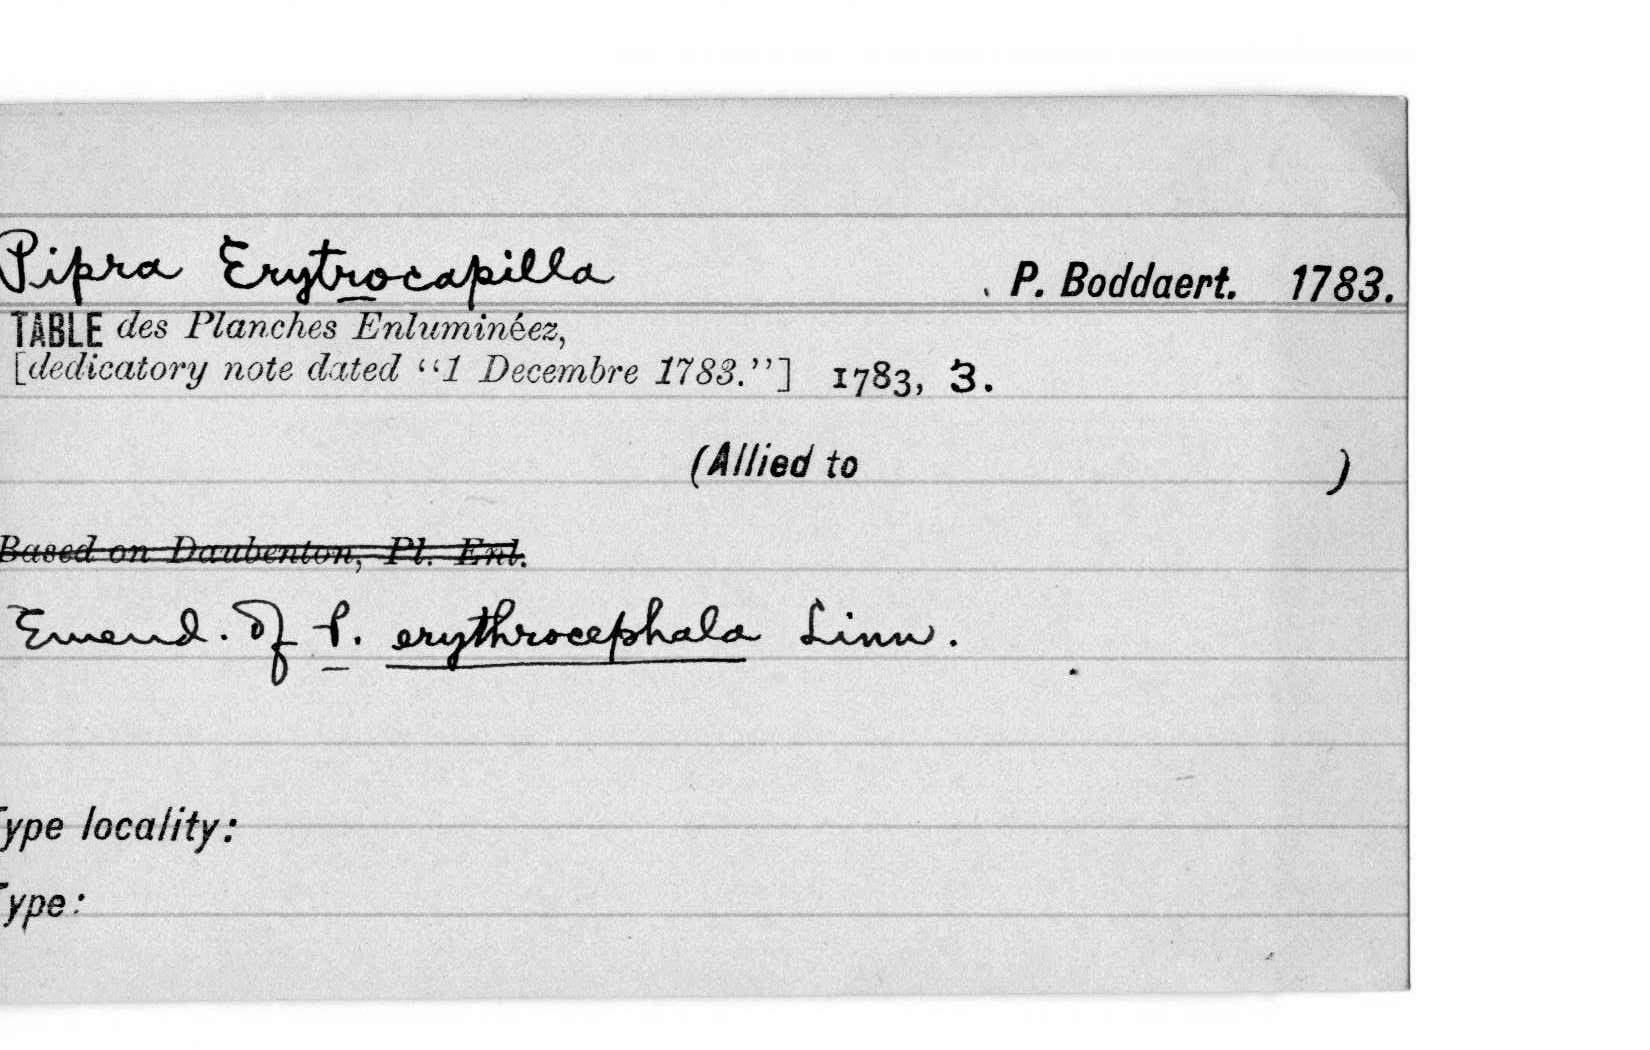 Pipra Erytrocapilla . P. Boddaert. 1783.
TABLE des Planches Enluminéez,
[dedicatory note dated “1 Decembre 1783.”] 1783, 3.
(Allied to )
Based on Daubenton, Pl. Enl.
Emend. of P. erythrocephala Linn.
Type locality:
Type: